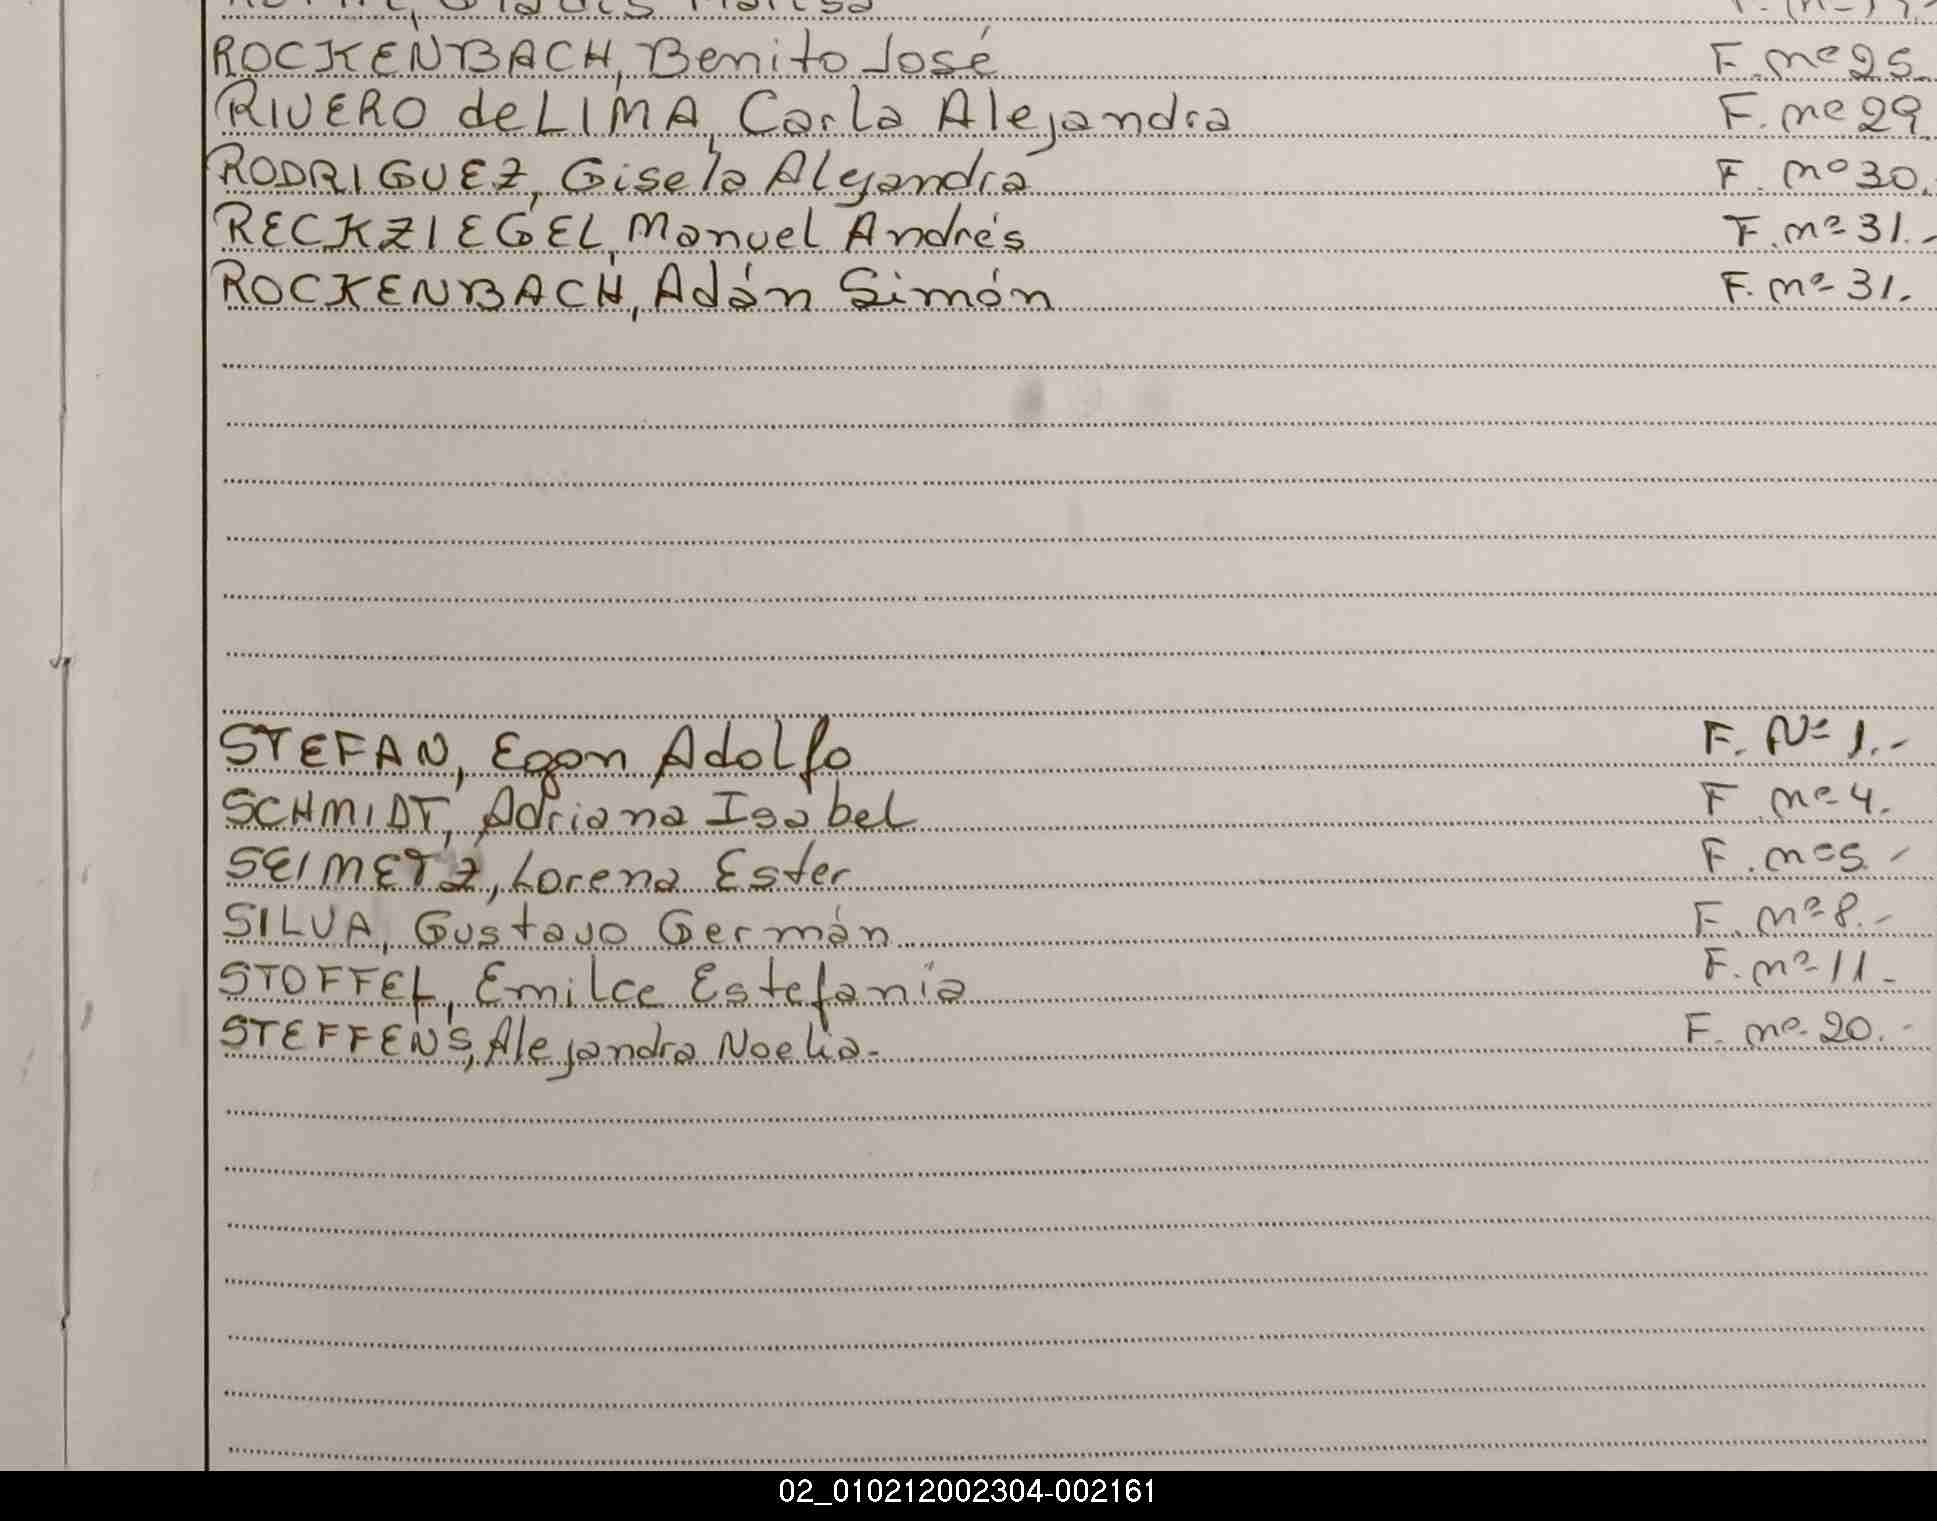 Gladis Marisa
ROCKENBACH, Benito José F. nº 25.
RIVERO de LIMA, Carla Alejandra F. nº 29
RODRIGUEZ, Gisela Alejandra F. nº 30.
RECKZIEGEL, Manuel Andrés F. nº 31.-
ROCKENBACH, Adán Simón F. nº 31.
STEFAN, Egon Adolfo F. Nº 1.-
SCHMIDT, Adriana Isabel F nº 4.
SEIMETZ, Lorena Ester F. nº 5.-
SILVA, Gustavo Germán F. nº 8.-
STOFFEL, Emilce Estefanía F. nº 11.-
STEFFENS, Alejandra Noelia.- F. nº 20.-
02_010212002304-002161